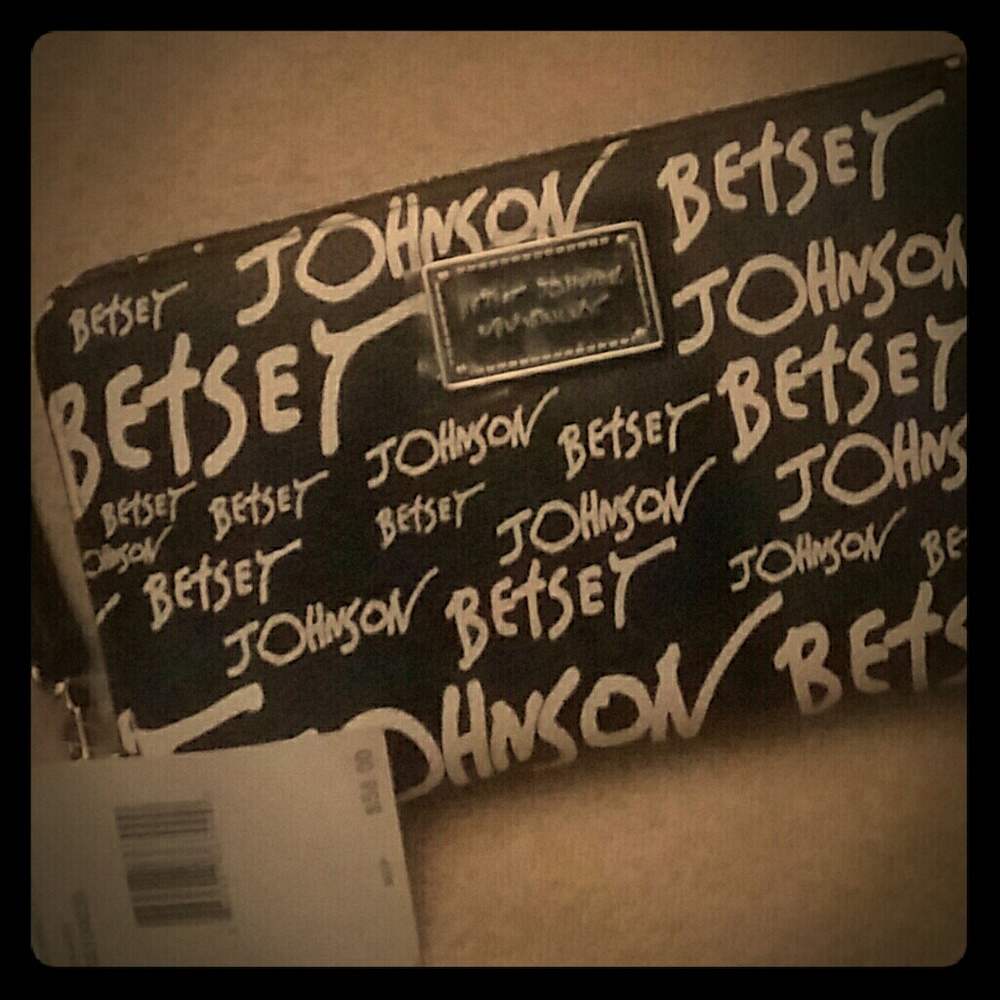 JOHNSON BETSEY
BETSEY JOHNSON
BETSEY BETSEY
JOHNSON BETSEY
BETSEY BETSEY BETSEY JOHNSON JOHNS
OHNSON BETSEY JOHNSON BE
JOHNSON BETSEY
OHNSON BETS
$58.00